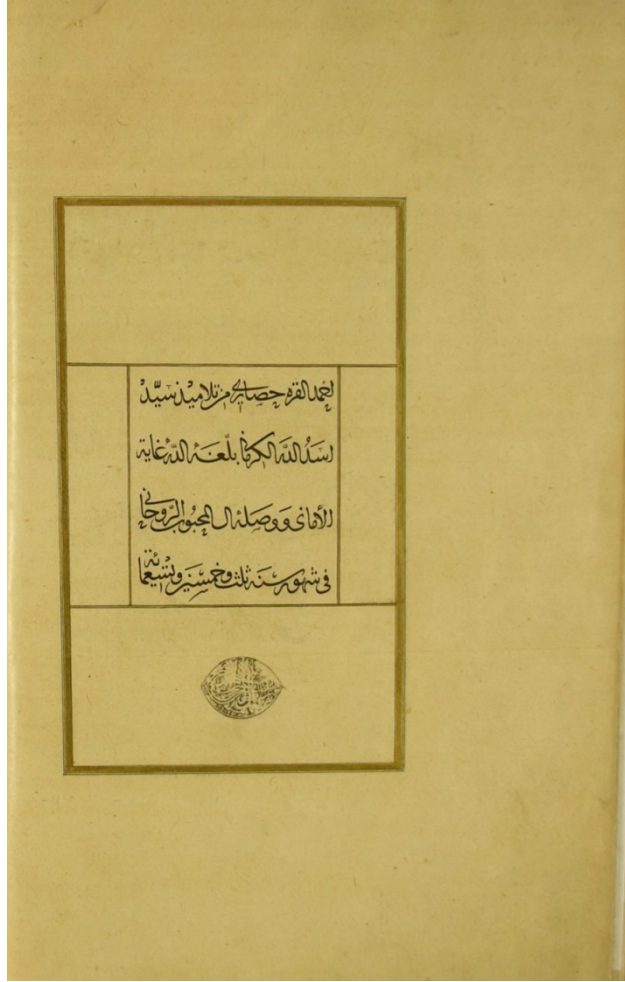 احمد القره حصاري من تلاميذ سيّد
اسد الله الكرماني بلّغه الله غاية
الأماني ووصله الى المحبوب الرّوحاني
في شهور سنه ثلث وخمسين وتسعمائة